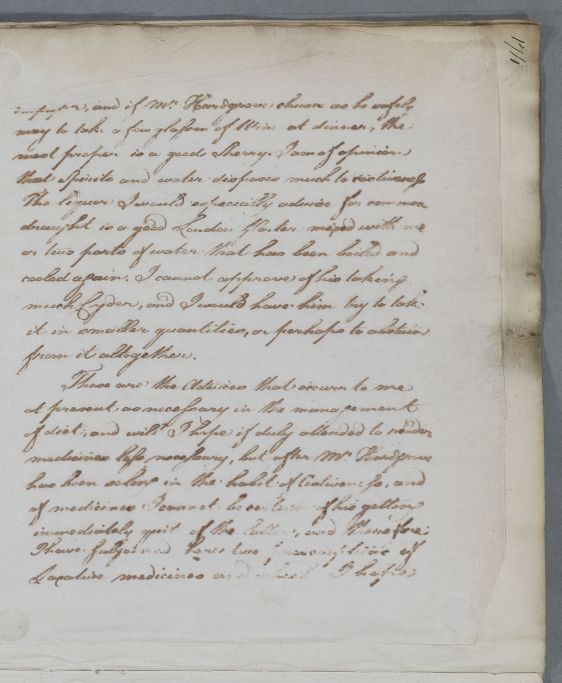 and if Mr. Hardgrove chuses as he safely
may to take a few glasses of Wine at dinner, the
most proper is a good Sherry. I am of opinion
that Spirits and water disposes much to costiveness
The liquor I would especially advise for common
draught is a good London Porter mixed with one
or two parts of water that has been boiled and
cooled again. I cannot approve of his taking
much Cyder, and I would have him try to take
it in smaller quantities, or perhaps to abstain
from it altogether.
These are the Advices that occurr to me
at present as necessary in the management
of diet, and will I hope if duly attended to render
medicines less necessary, but after Mr. Hardgrove
has been so long in the habit of Costiveness, and
of medicines I cannot be certain of his getting
immediately quit of the latter, and therefore
I have subjoined here two prescriptions of
Laxative medicines and which I hope